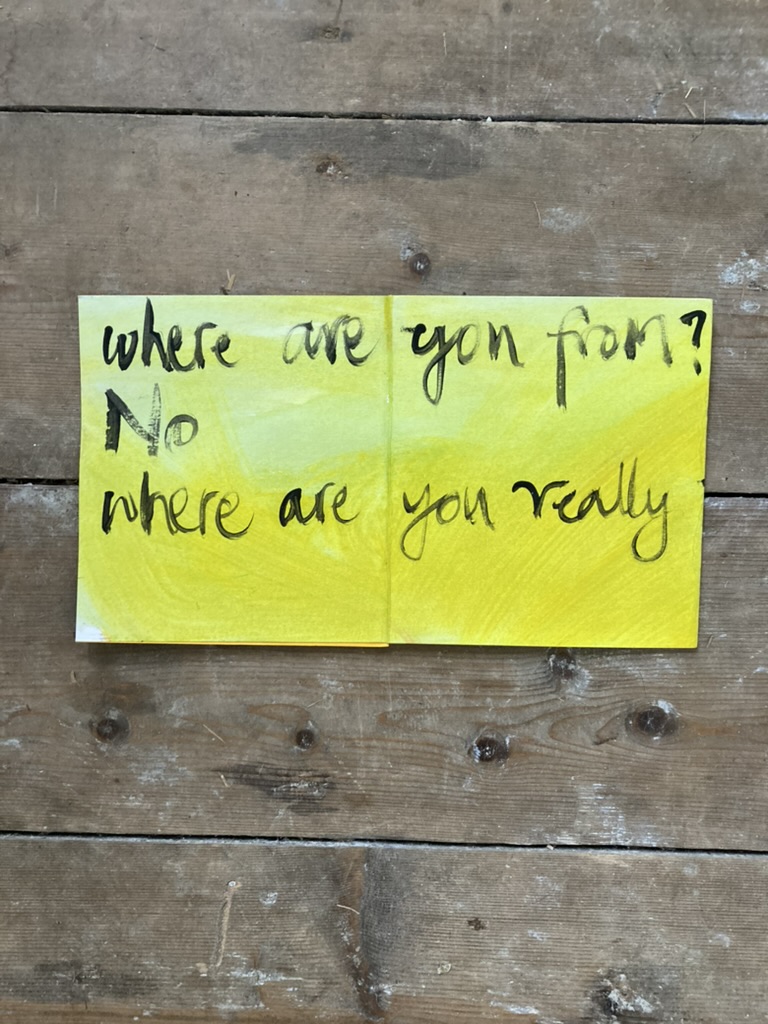 where are you from?
No
where are you really